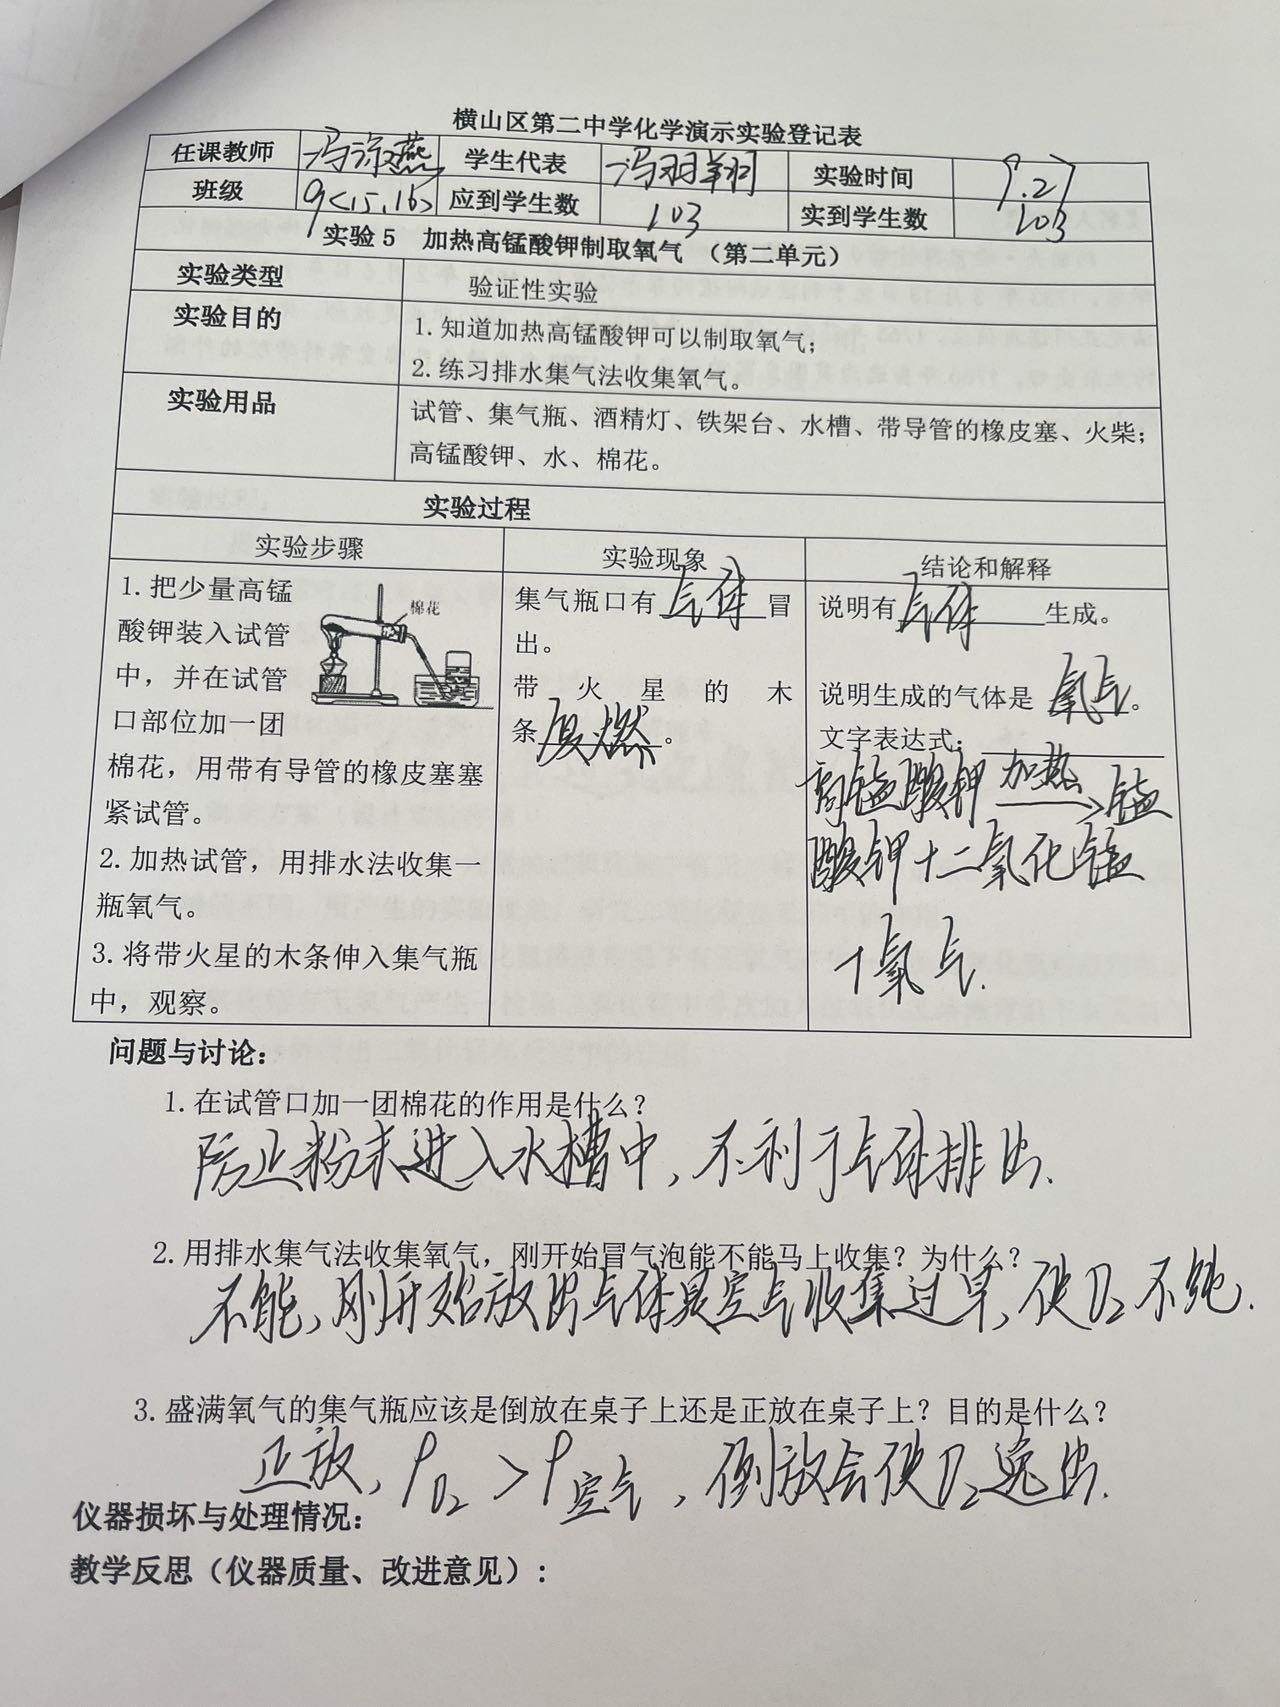 横山区第二中学化学演示实验登记表
任课教师 冯凉燕 学生代表 冯羽翔 实验时间 9.27
班级 9<15.16> 应到学生数 103 实到学生数 103
实验5 加热高锰酸钾制取氧气 （第二单元）
实验类型 验证性实验
实验目的 1.知道加热高锰酸钾可以制取氧气；
2.练习排水集气法收集氧气。
实验用品 试管、集气瓶、酒精灯、铁架台、水槽、带导管的橡皮塞、火柴；
高锰酸钾、水、棉花。
实验过程
实验步骤 实验现象 结论和解释
1.把少量高锰
酸钾装入试管
中，并在试管
口部位加一团
棉花，用带有导管的橡皮塞塞
紧试管。
2.加热试管，用排水法收集一
瓶氧气。
3.将带火星的木条伸入集气瓶
中，观察。
棉花
集气瓶口有气体冒
出。
带火星的木
条复燃。
说明有气体生成。
说明生成的气体是氧气。
文字表达式：
高锰酸钾 加热→ 锰
酸钾+二氧化锰
+氧气.
问题与讨论：
1.在试管口加一团棉花的作用是什么？
防止粉末进入水槽中，不利于气体排出.
2.用排水集气法收集氧气，刚开始冒气泡能不能马上收集？为什么？
不能，刚开始放出气体是空气收集过早，使O₂不纯.
3.盛满氧气的集气瓶应该是倒放在桌子上还是正放在桌子上？目的是什么？
正放，ρO₂>ρ空气，倒放会使O₂逸出.
仪器损坏与处理情况：
教学反思（仪器质量、改进意见）：